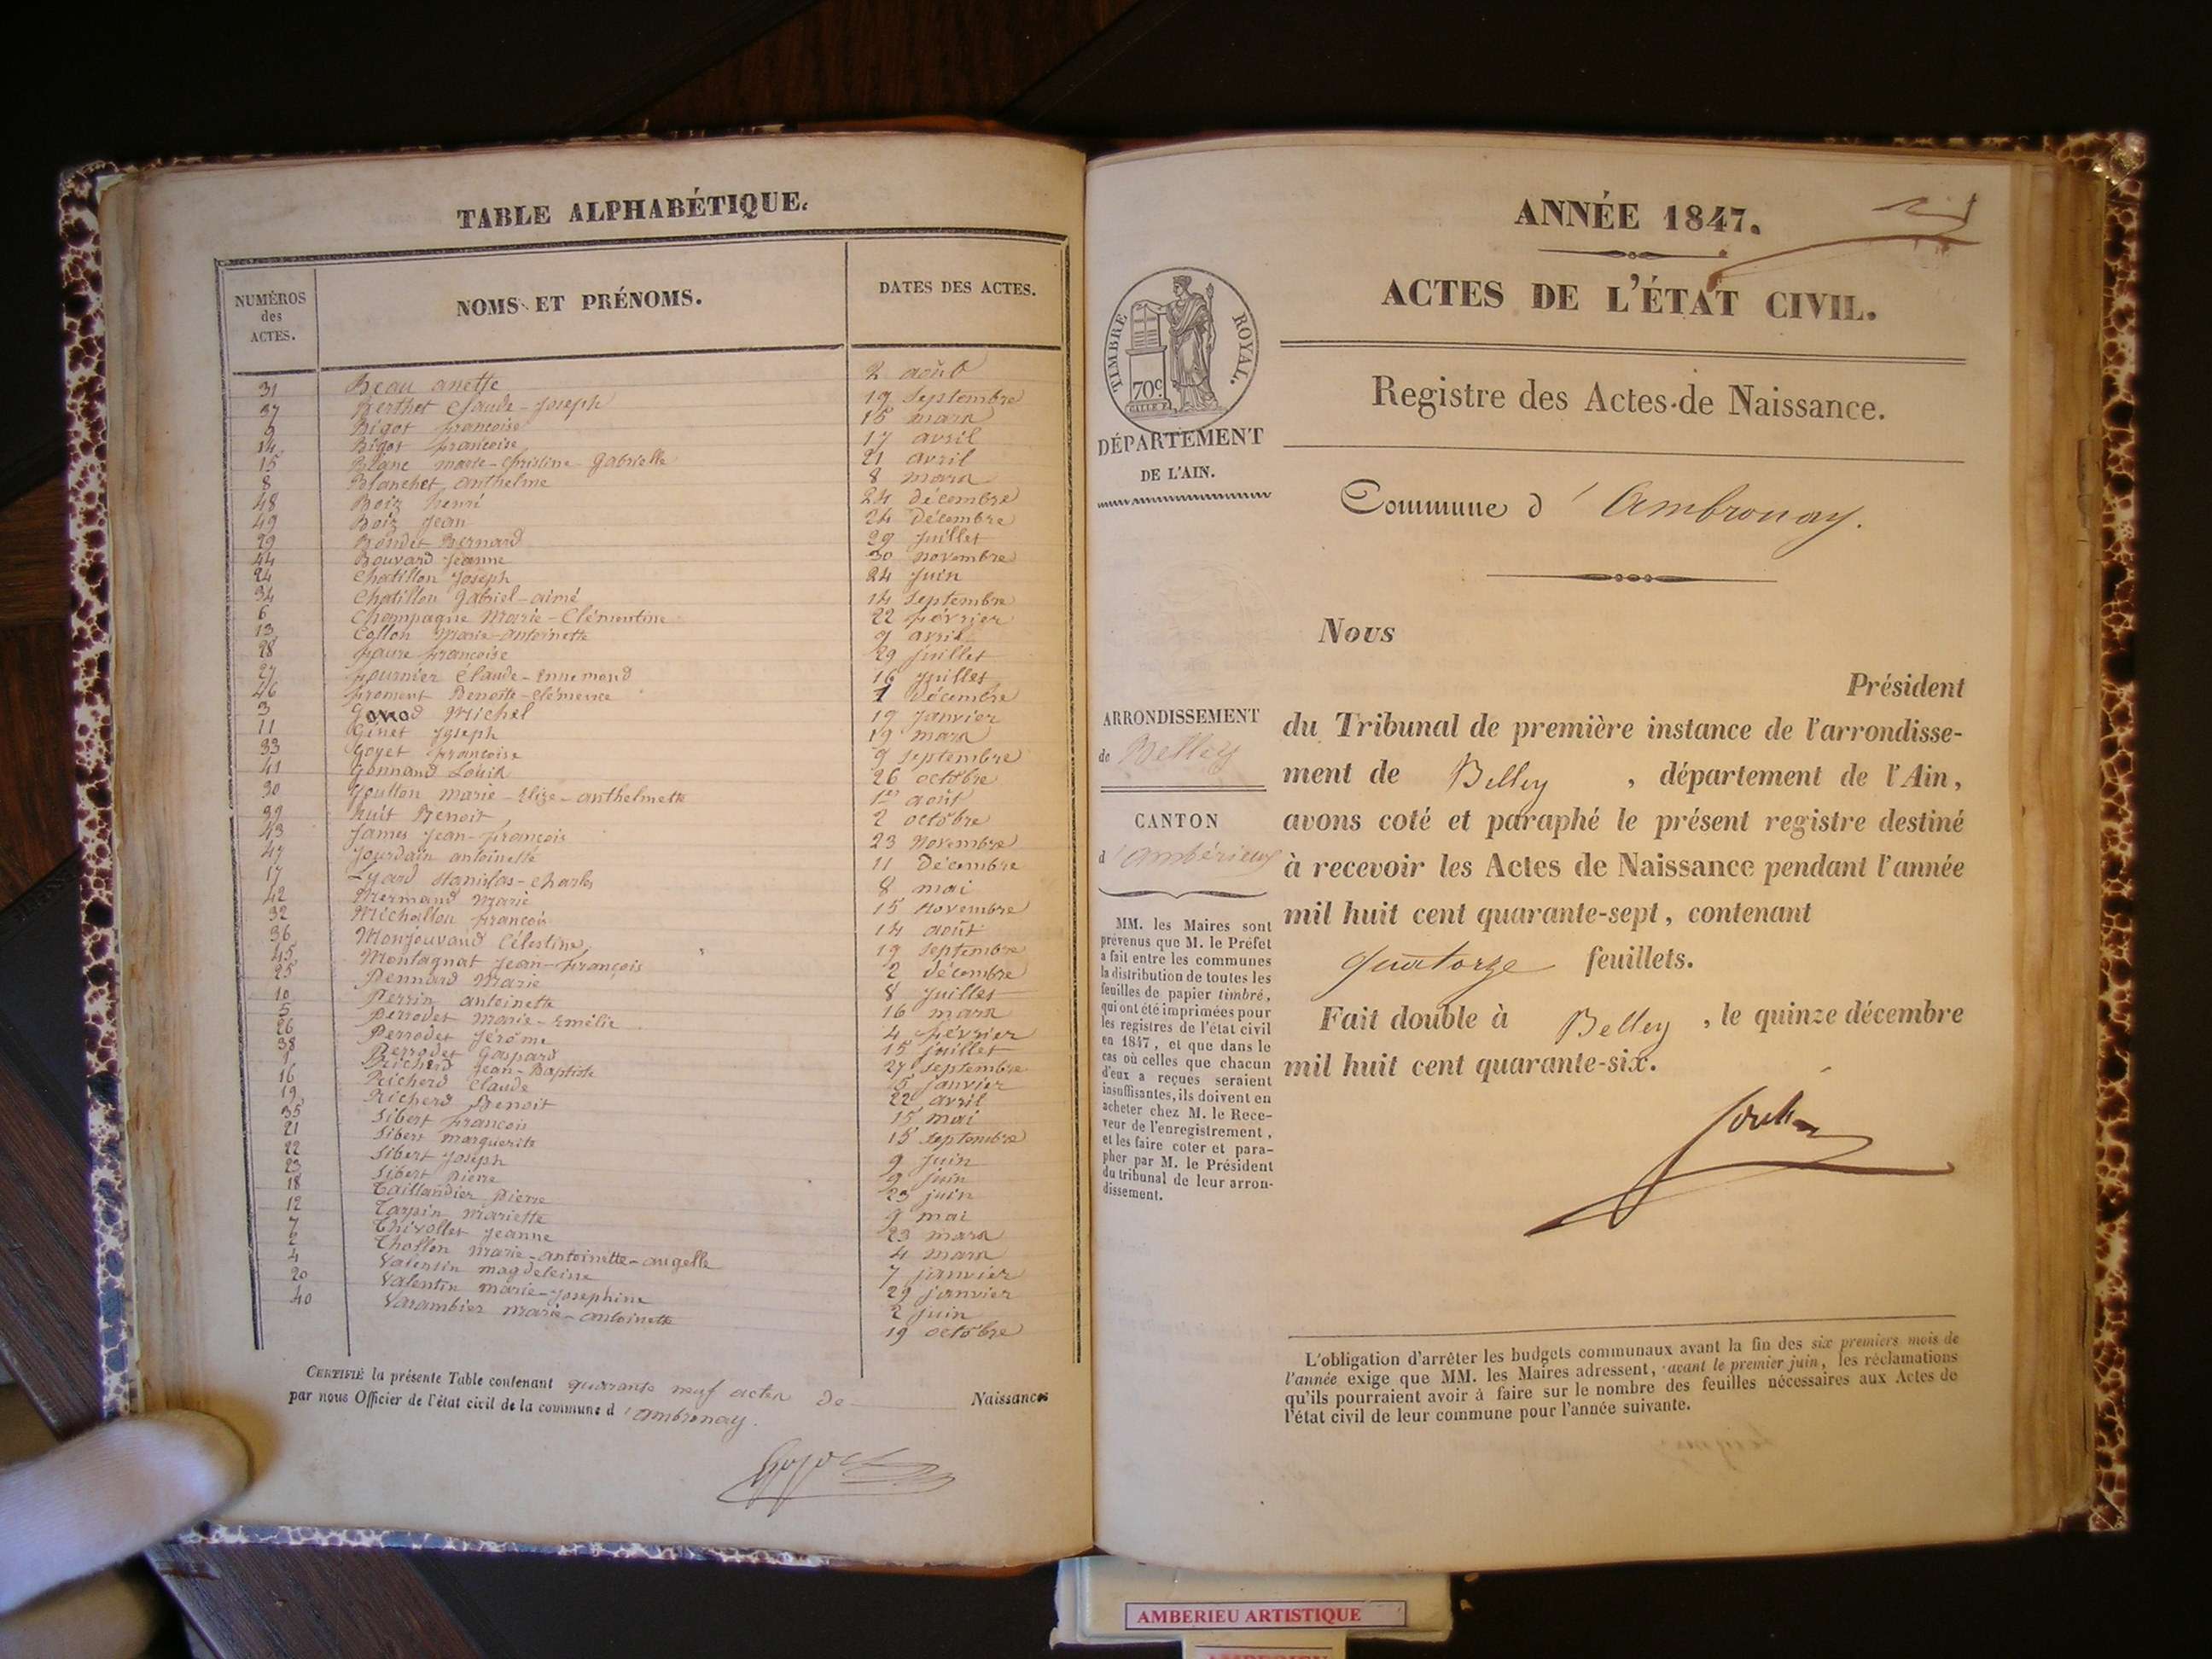 TABLE ALPHABÉTIQUE.
NUMÉROS des ACTES. NOMS ET PRÉNOMS. DATES DES ACTES.
31 Beau anette 2 août
37 Berthet Claude-Joseph 19 Septembre
9 Bigot françoise 15 mars
14 Bigot françoise 17 avril
15 Blanc marie-Christine Gabrielle 21 avril
8 Blanchet anthelme 8 mars
48 Boiz henri 24 décembre
49 Boiz Jean 24 Décembre
29 Boudet Bernard 29 Juillet
44 Bouvard Jeanne 30 novembre
24 Chatillon Joseph 24 Juin
34 Chatillon Gabriel-aimé 14 Septembre
6 Champagne Marie-Clémentine 22 février
13 Collon Marie-antoinette 9 avril
28 faure françoise 29 juillet
27 fournier Claude-Ennemond 16 Juillet
46 froment Benoîte-Clémence 1 décembre
3 Michel 19 Janvier
11 Genet Joseph 19 mars
33 Goyet françoise 9 septembre
41 Gonnand Louis 26 octobre
30 Goullon marie-Elize-anthelmette 1er août
39 huit Benoit 2 octobre
43 James Jean-françois 23 novembre
47 Jourdain antoinette 11 Décembre
17 Lyard Stanislas-Charles 8 mai
42 Mermand Marie 15 novembre
32 Michallon françois 14 août
36 Monjouvand Célestine 19 Septembre
45 Montagnat Jean-françois 2 décembre
25 Pennard Marie 8 Juillet
10 Perrin antoinette 16 mars
5 Perrodet Marie-Emélie 4 février
26 Perrodet Jérôme 15 juillet
38 Perrodet Gaspard 27 septembre
1 Richerd Jean-Baptiste 5 janvier
16 Richerd Claude 22 avril
19 Richerd Benoit 15 mai
35 Sibert françois 15 Septembre
21 Sibert marguerite 9 Juin
22 Sibert Joseph 9 Juin
23 Sibert Pierre 23 juin
18 Taillandier Pierre 9 mai
12 Tarpin Mariette 23 mars
7 Thivollet Jeanne 4 mars
2 Thollon Marie-antoinette-angelle 7 janvier
4 Valentin magdeleine 29 janvier
20 Valentin marie-Josephine 2 juin
40 Varambier marie-antoinette 19 octobre
CERTIFIÉ la présente Table contenant quarante neuf actes de Naissances
par nous Officier de l'état civil de la commune d'ambronay.
ANNÉE 1847.
ACTES DE L'ÉTAT CIVIL.
TIMBRE ROYAL.
70c.
DÉPARTEMENT
DE L'AIN.
Registre des Actes de Naissance.
Commune d'Ambronay.
Nous
Président
du Tribunal de première instance de l'arrondisse-
ment de Belley, département de l'Ain,
avons coté et paraphé le présent registre destiné
à recevoir les Actes de Naissance pendant l'année
mil huit cent quarante-sept, contenant
quatorze feuillets.
Fait double à Belley, le quinze décembre
mil huit cent quarante-six.
ARRONDISSEMENT
de Belley
CANTON
d'ambérieux
MM. les Maires sont
prévenus que M. le Préfet
a fait entre les communes
la distribution de toutes les
feuilles de papier timbré,
qui ont été imprimées pour
les registres de l'état civil
en 1847, et que dans le
cas où celles que chacun
d'eux a reçues seraient
insuffisantes, ils doivent en
acheter chez M. le Rece-
veur de l'enregistrement,
et les faire coter et para-
pher par M. le Président
du tribunal de leur arron-
dissement.
L'obligation d'arrêter les budgets communaux avant la fin des six premiers mois de
l'année exige que MM. les Maires adressent, avant le premier juin, les réclamations
qu'ils pourraient avoir à faire sur le nombre des feuilles nécessaires aux Actes de
l'état civil de leur commune pour l'année suivante.
AMBERIEU ARTISTIQUE